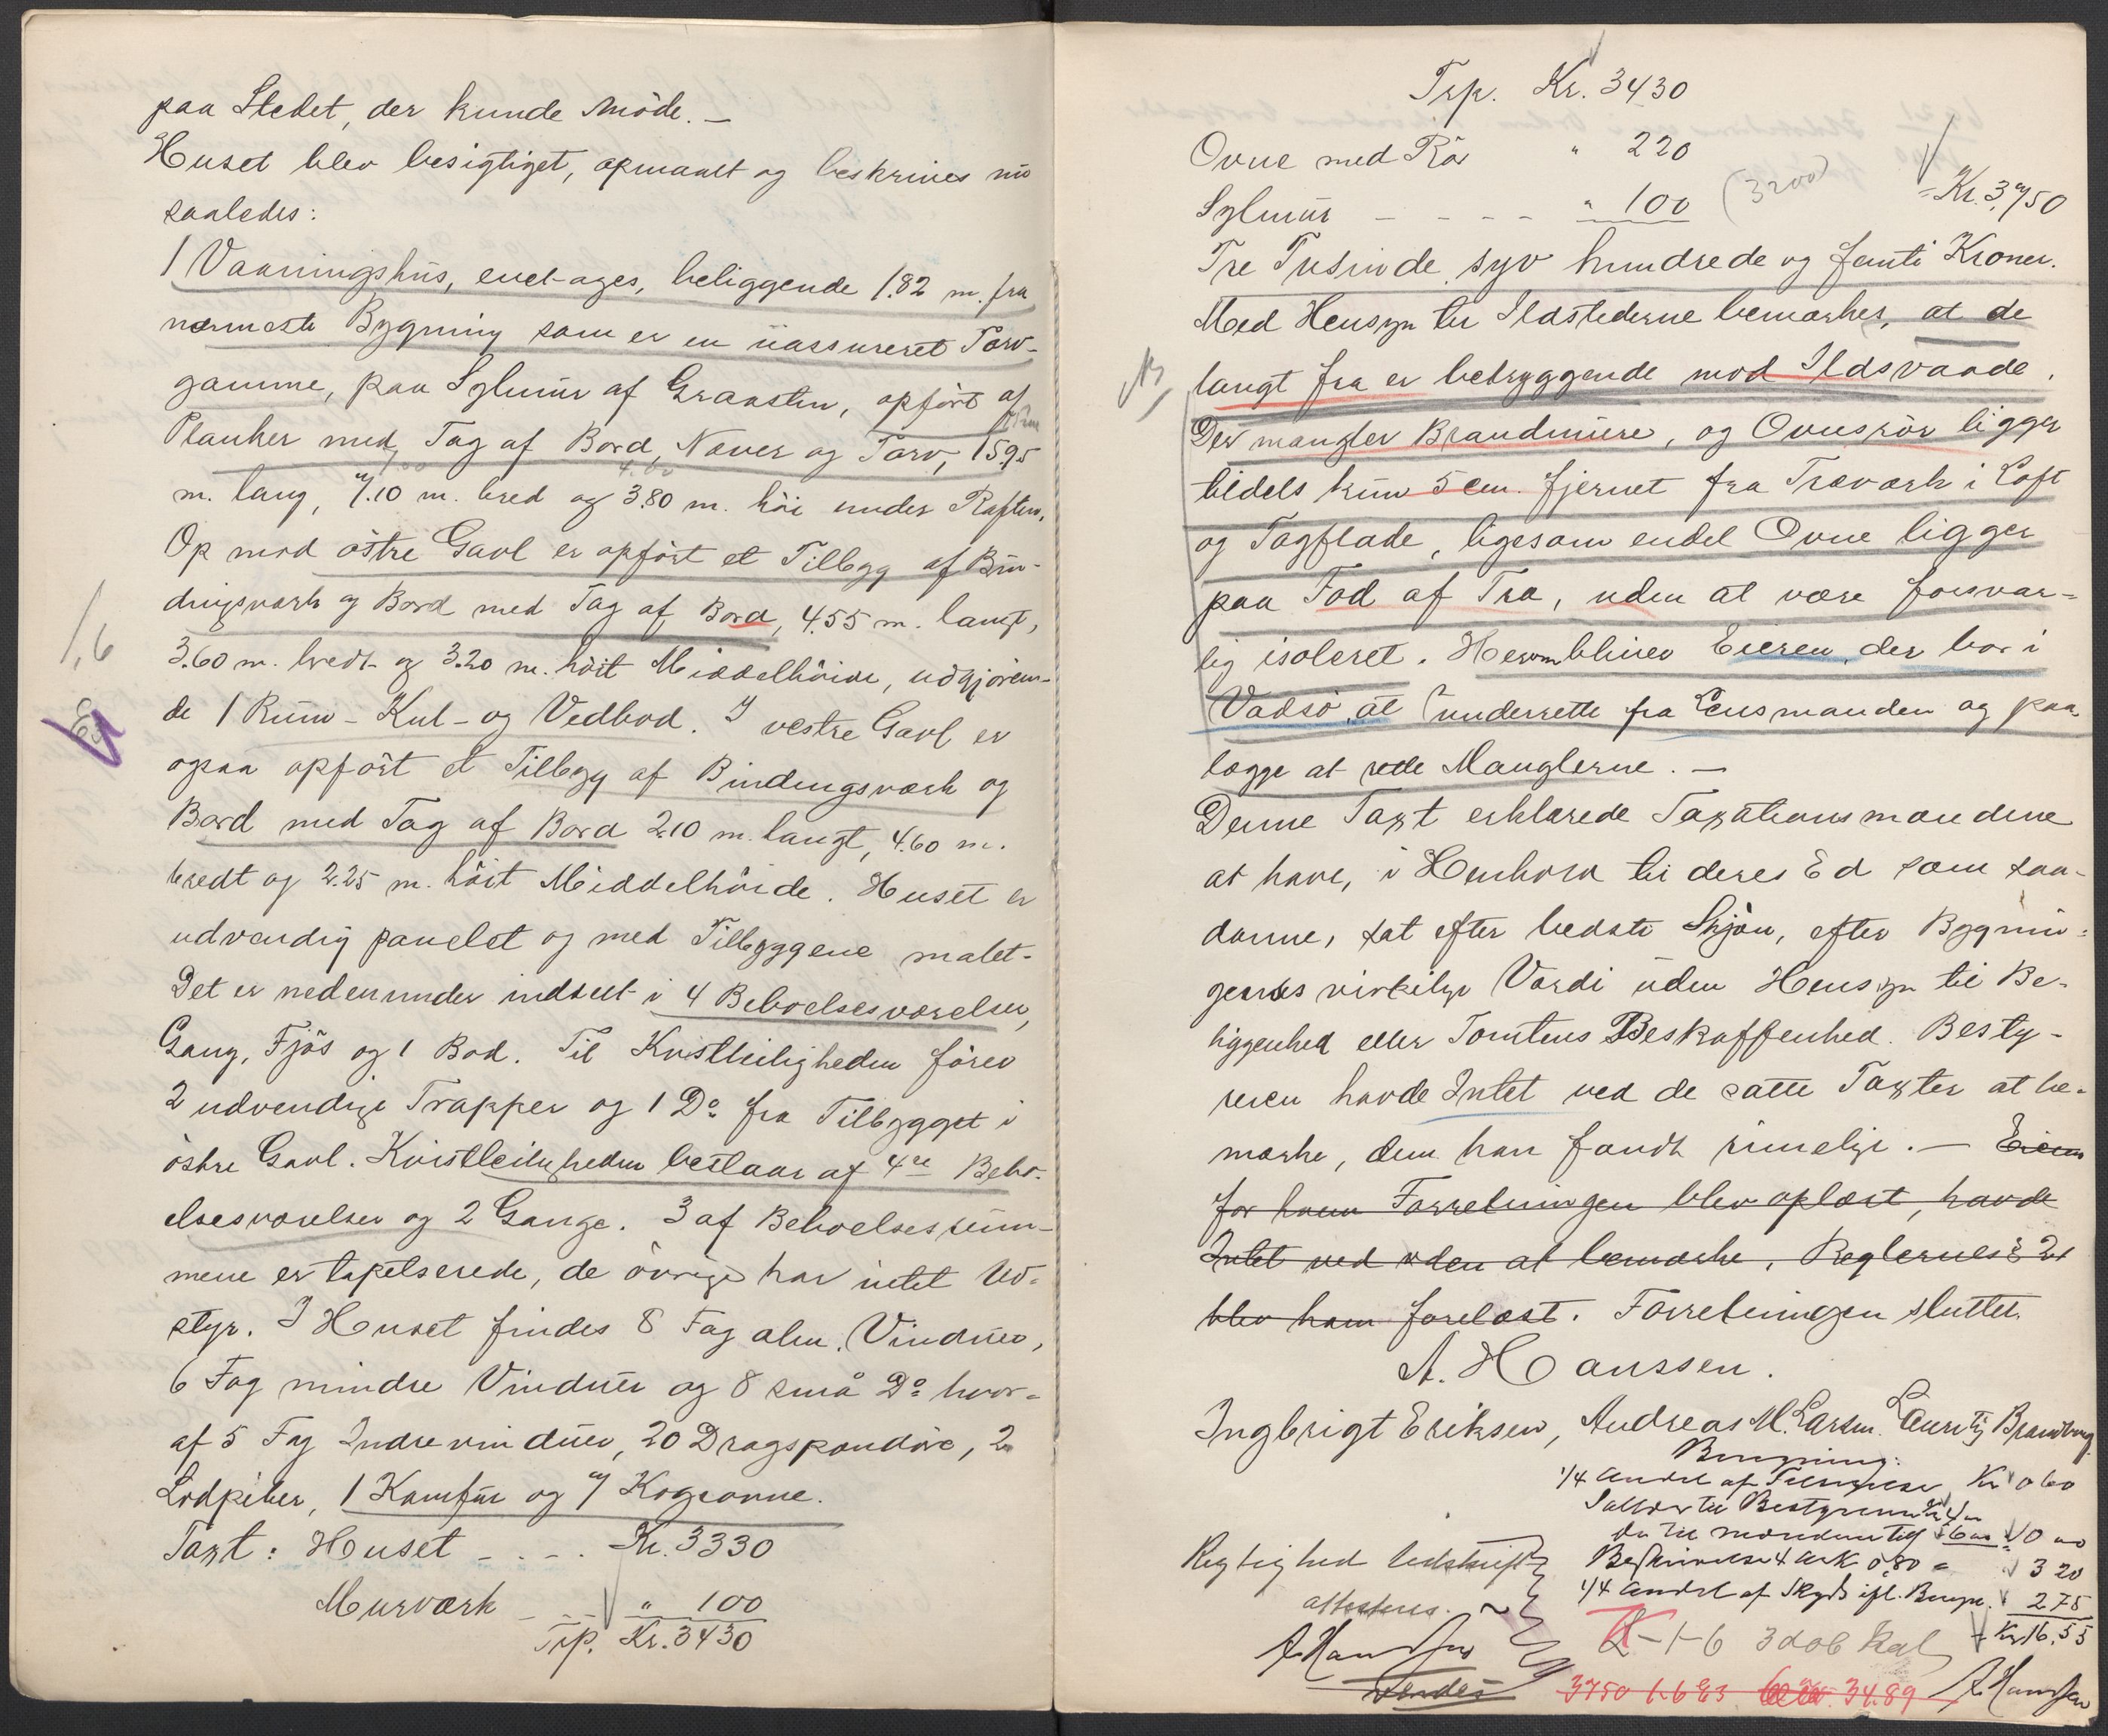 paa Stedet, der kunde møde. —
Huset blev besigtiget, opmaalt og beskrives nu
saaledes:
1 Vaaningshus, enetages, beliggende 1.82 m. fra
nærmeste Bygning som er en uassureret Torv-
gamme, paa Sylmur af Graasten, opført af
Planker med Tag af Bord, Næver og Torv, 15.95
m. lang, 7.10 m. bred og 3.80 m. høi under Raften.
4.60
Op mod østre Gavl er opført et Tilbygg af Bin-
dingsværk og Bord med Tag af Bord, 4.55 m. langt,
1,6
3.60 m. bredt og 3.20 m. høit Middelhøide, udgjøren-
de 1 Rum - Kul- og Vedbod. I vestre Gavl er
ogsaa opført et Tilbygg af Bindingsværk og
Bord med Tag af Bord 2.10 m. langt, 4.60 m.
bredt og 2.25 m. høit Middelhøide. Huset er
udvendig panelet og med Tilbyggene malet.
Det er nedenunder indeelt i 4 Beboelsesværelser,
Gang, Fjøs og 1 Bod. Til Kvistleiligheden fører
2 udvendige Trapper og 1 Do fra Tilbygget i
østre Gavl. Kvistleiligheden bestaar af 4re Bebo-
elsesværelser og 2 Gange. 3 af Beboelsesrum-
mene er tapetserede, de øvrige har intet Ud-
styr. I Huset findes 8 Fag alm. Vinduer,
6 Fag mindre Vinduer og 8 små Do hvor-
af 5 Fag Indrevinduer, 20 Dragspaandøre, 2
Lodpiber, 1 Komfur og 7 Kogeovne.
Taxt: Huset - - - . Kr. 3330
Murværk - - - " 100
Trp. Kr. 3430
Trp. Kr. 3430
Ovne med Rør " 220
Sylmur - - - - " 100 (3200) = Kr. 3,750
Tre Tusinde syv hundrede og femti Kroner.
Med Hensyn til Ildstederne bemærkes, at de
langt fra er betryggende mod Ildsvaade.
Der mangler Brandmure, og Ovnsrør ligger
tildels kun 5 cm. fjernet fra Træværk i Loft
og Tagflade, ligesom endel Ovne ligger
paa Fod af Træ, uden at være forsvar-
lig isoleret. Herom bliver Eieren, der bor i
Vadsø, at underrette fra Lensmanden og paa-
lægge at rette Manglerne. —
Denne Taxt erklærede Taxationsmændene
at have, i Henhold til deres Ed som saa-
danne, sat efter bedste Skjøn, efter Bygnin-
gernes virkelige Værdi uden Hensyn til Be-
liggenhed eller Tomtens Beskaffenhed. Besty-
reren havde Intet ved de satte Taxter at be-
mærke, dem han fandt rimelige. — Eieren
for hvem Forretningen blev oplæst, havde
Intet ved den at bemærke. Reglernes § 21
blev ham forelæst. Forretningen sluttet.
A. Hanssen.
Ingbrigt Eriksen, Andreas M. Larsen. Lauritz Brandvog
Beregning:
1/4 Andel af Kr 0 60
til Bestyreren Kr 4
do til mændene 6 10 00
Beskrivelse 4 Ark 0,80 = 3 20
1/4 Andel af Skyds ifl. Beregn. 2 75
Kr. 16,55
Rigtighed Udskrift
attesteres.
A. Hanssen
Vendes
1-6
3750 1.6 34.89
A. Hanssen